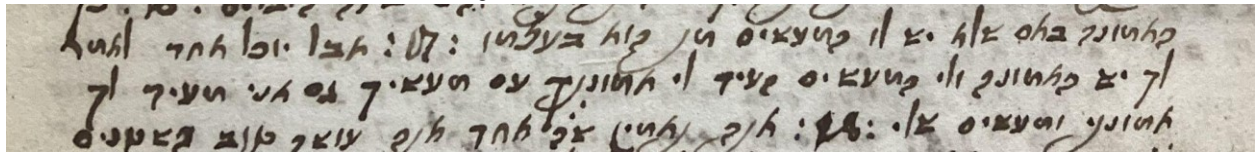 האמונה באם שלא יש לו המעשים מת הוא בעצמו :17: אבל יוכל אחד לאמר
לך יש האמונה ולי המעשים העיד לי אמונתך עם מעשיך גם אני מעיד לך
אמונתי ומעשים שלי :18: אתה מאמין אחד אתה עושה טוב השטנים